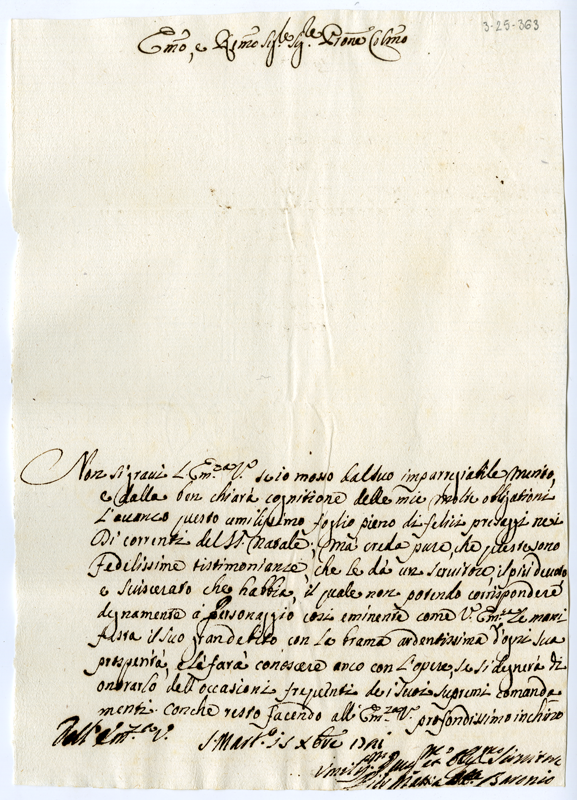 3-25-363
Emo, e Rmo Sigre Sigre Prone Colmo
Non si gravi L'Emza Va se io mosso dal suo impareggiabile merito,
e dalla ben chiara cognitione delle mie molte obligationi
L'avanzo questo umilissimo foglio pieno di felici presaggi nei
Di correnti del SS. Natale; Mà creda pure, che queste sono
Fedelissime testimonianze, che le dà un servitore, il più devoto
e sviscerato che habbia, il quale non potendo corrispondere
degnamente à Personaggio così eminente come V. Emza Le mani
festa il suo gran debito con la brama ardentissima d'ogni sua
prosperità, e Le farà conoscere anco con L'opere, se si degnerà di
onorarlo dell'occasioni frequenti de i Suoi supremi comanda
menti. Con che resto facendo all'Emza Va profondissimo inchino
Dell'Emza V.
S. Marto 15 Xbre
Servitore
Baronio